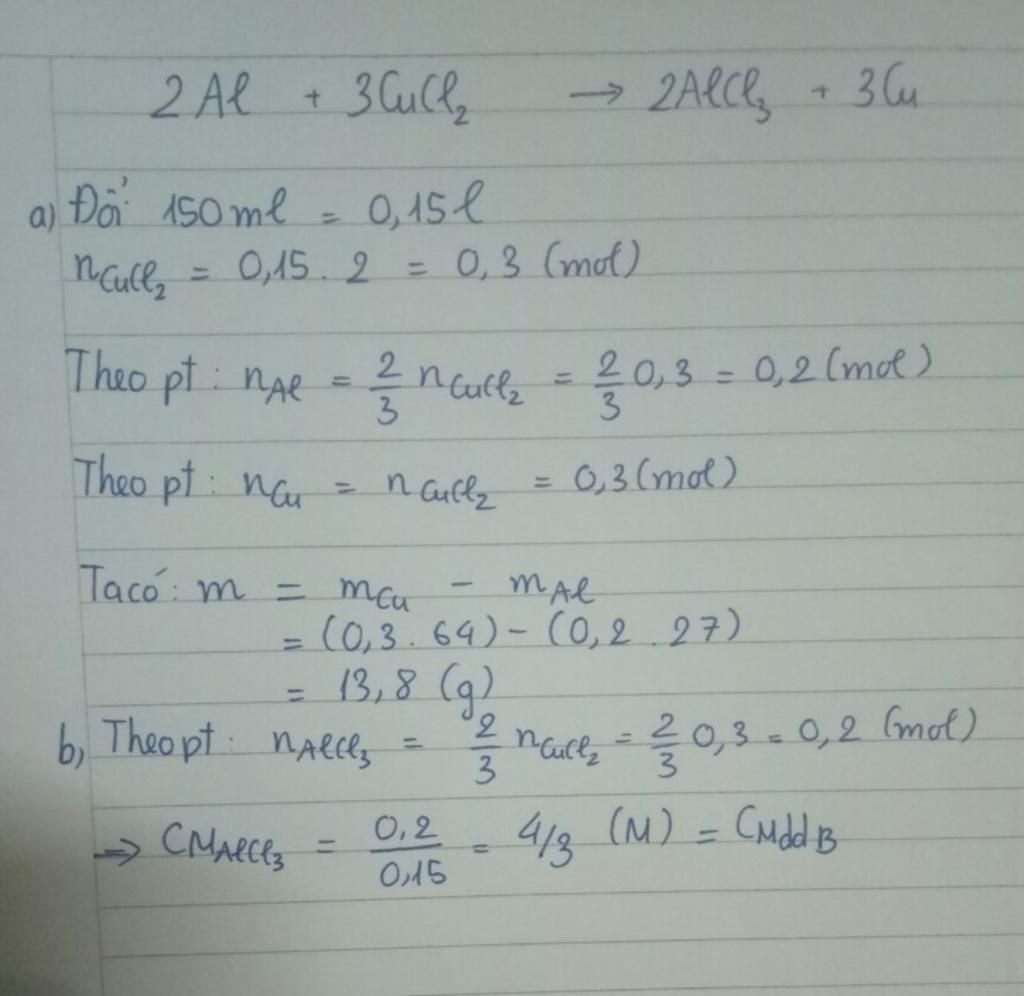 2Al + 3CuCl₂ → 2AlCl₃ + 3Cu
a) Đổi 150ml = 0,15l
nCuCl₂ = 0,15 . 2 = 0,3 (mol)
Theo pt : nAl = 2/3 nCuCl₂ = 2/3 0,3 = 0,2 (mol)
Theo pt : nCu = nCuCl₂ = 0,3 (mol)
Ta có : m = mCu - mAl
= (0,3 . 64) - (0,2 . 27)
= 13,8 (g)
b, Theo pt : nAlCl₃ = 2/3 nCuCl₂ = 2/3 0,3 = 0,2 (mol)
=> CMAlCl₃ = 0,2/0,15 = 4/3 (M) = CMddB